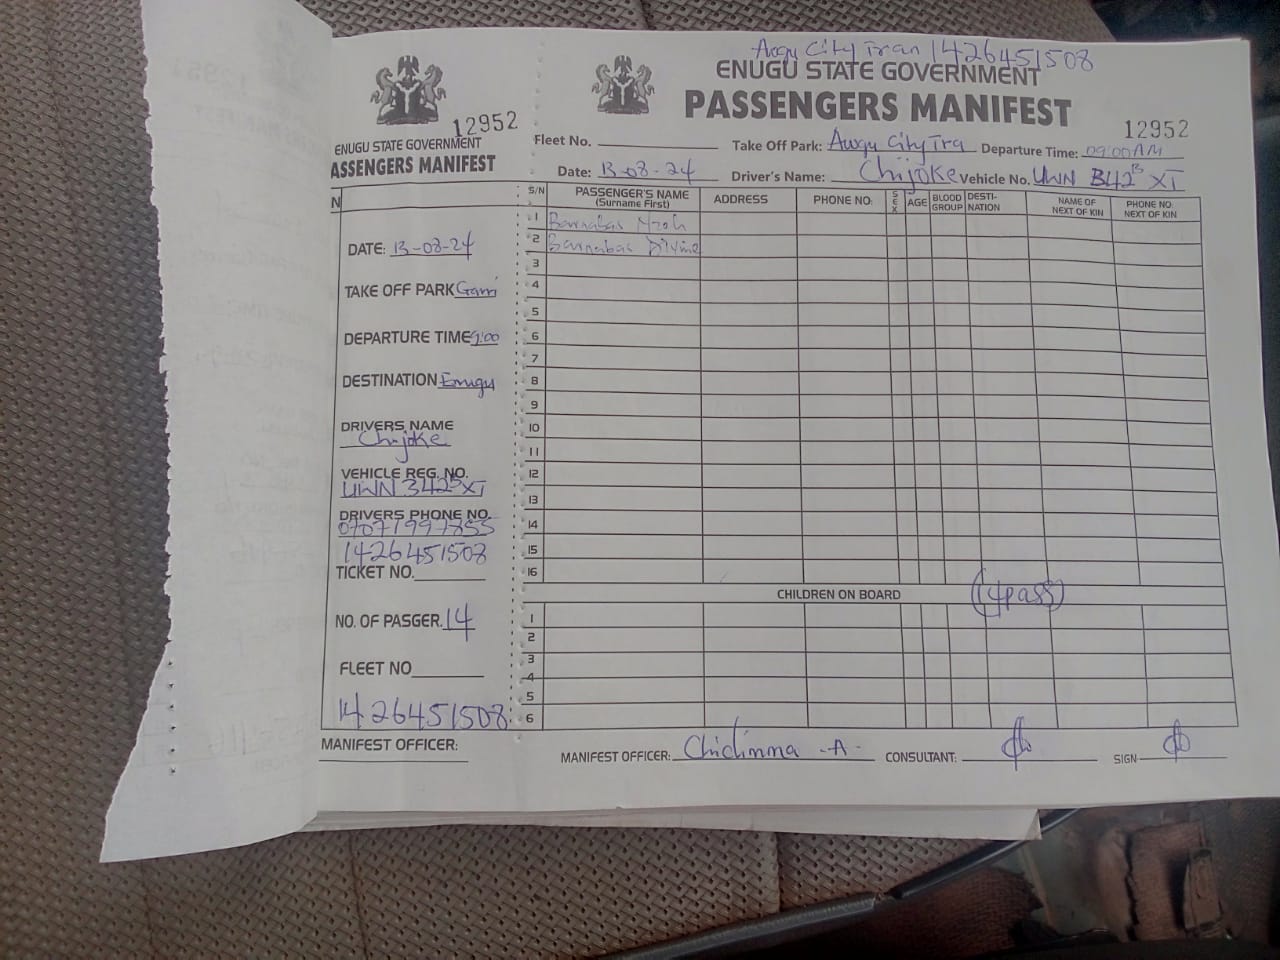 12952
ENUGU STATE GOVERNMENT
ASSENGERS MANIFEST
N
DATE: 13-08-24
TAKE OFF PARK Garri
DEPARTURE TIME 9:00
DESTINATION Enugu
DRIVERS NAME
Chijoke
VEHICLE REG. NO.
UWN 342 XT
DRIVERS PHONE NO.
07071997855
1426451508
TICKET NO.
NO. OF PASGER. 14
FLEET NO
1426451508
MANIFEST OFFICER:
Awgu City Tran 1426451508
ENUGU STATE GOVERNMENT
PASSENGERS MANIFEST
12952
Fleet No. Take Off Park: Awgu City Tra Departure Time: 09:00AM
Date: 13-08-24 Driver's Name: Chijoke Vehicle No. UWN 342 XT
S/N PASSENGER'S NAME (Surname First) ADDRESS PHONE NO: SEX AGE BLOOD GROUP DESTI-NATION NAME OF NEXT OF KIN PHONE NO: NEXT OF KIN
1 Barnabas
2 Barnabas Divine
3
4
5
6
7
8
9
10
11
12
13
14
15
16
CHILDREN ON BOARD (14pass)
1
2
3
4
5
6
MANIFEST OFFICER: Chidinma -A- CONSULTANT: SIGN